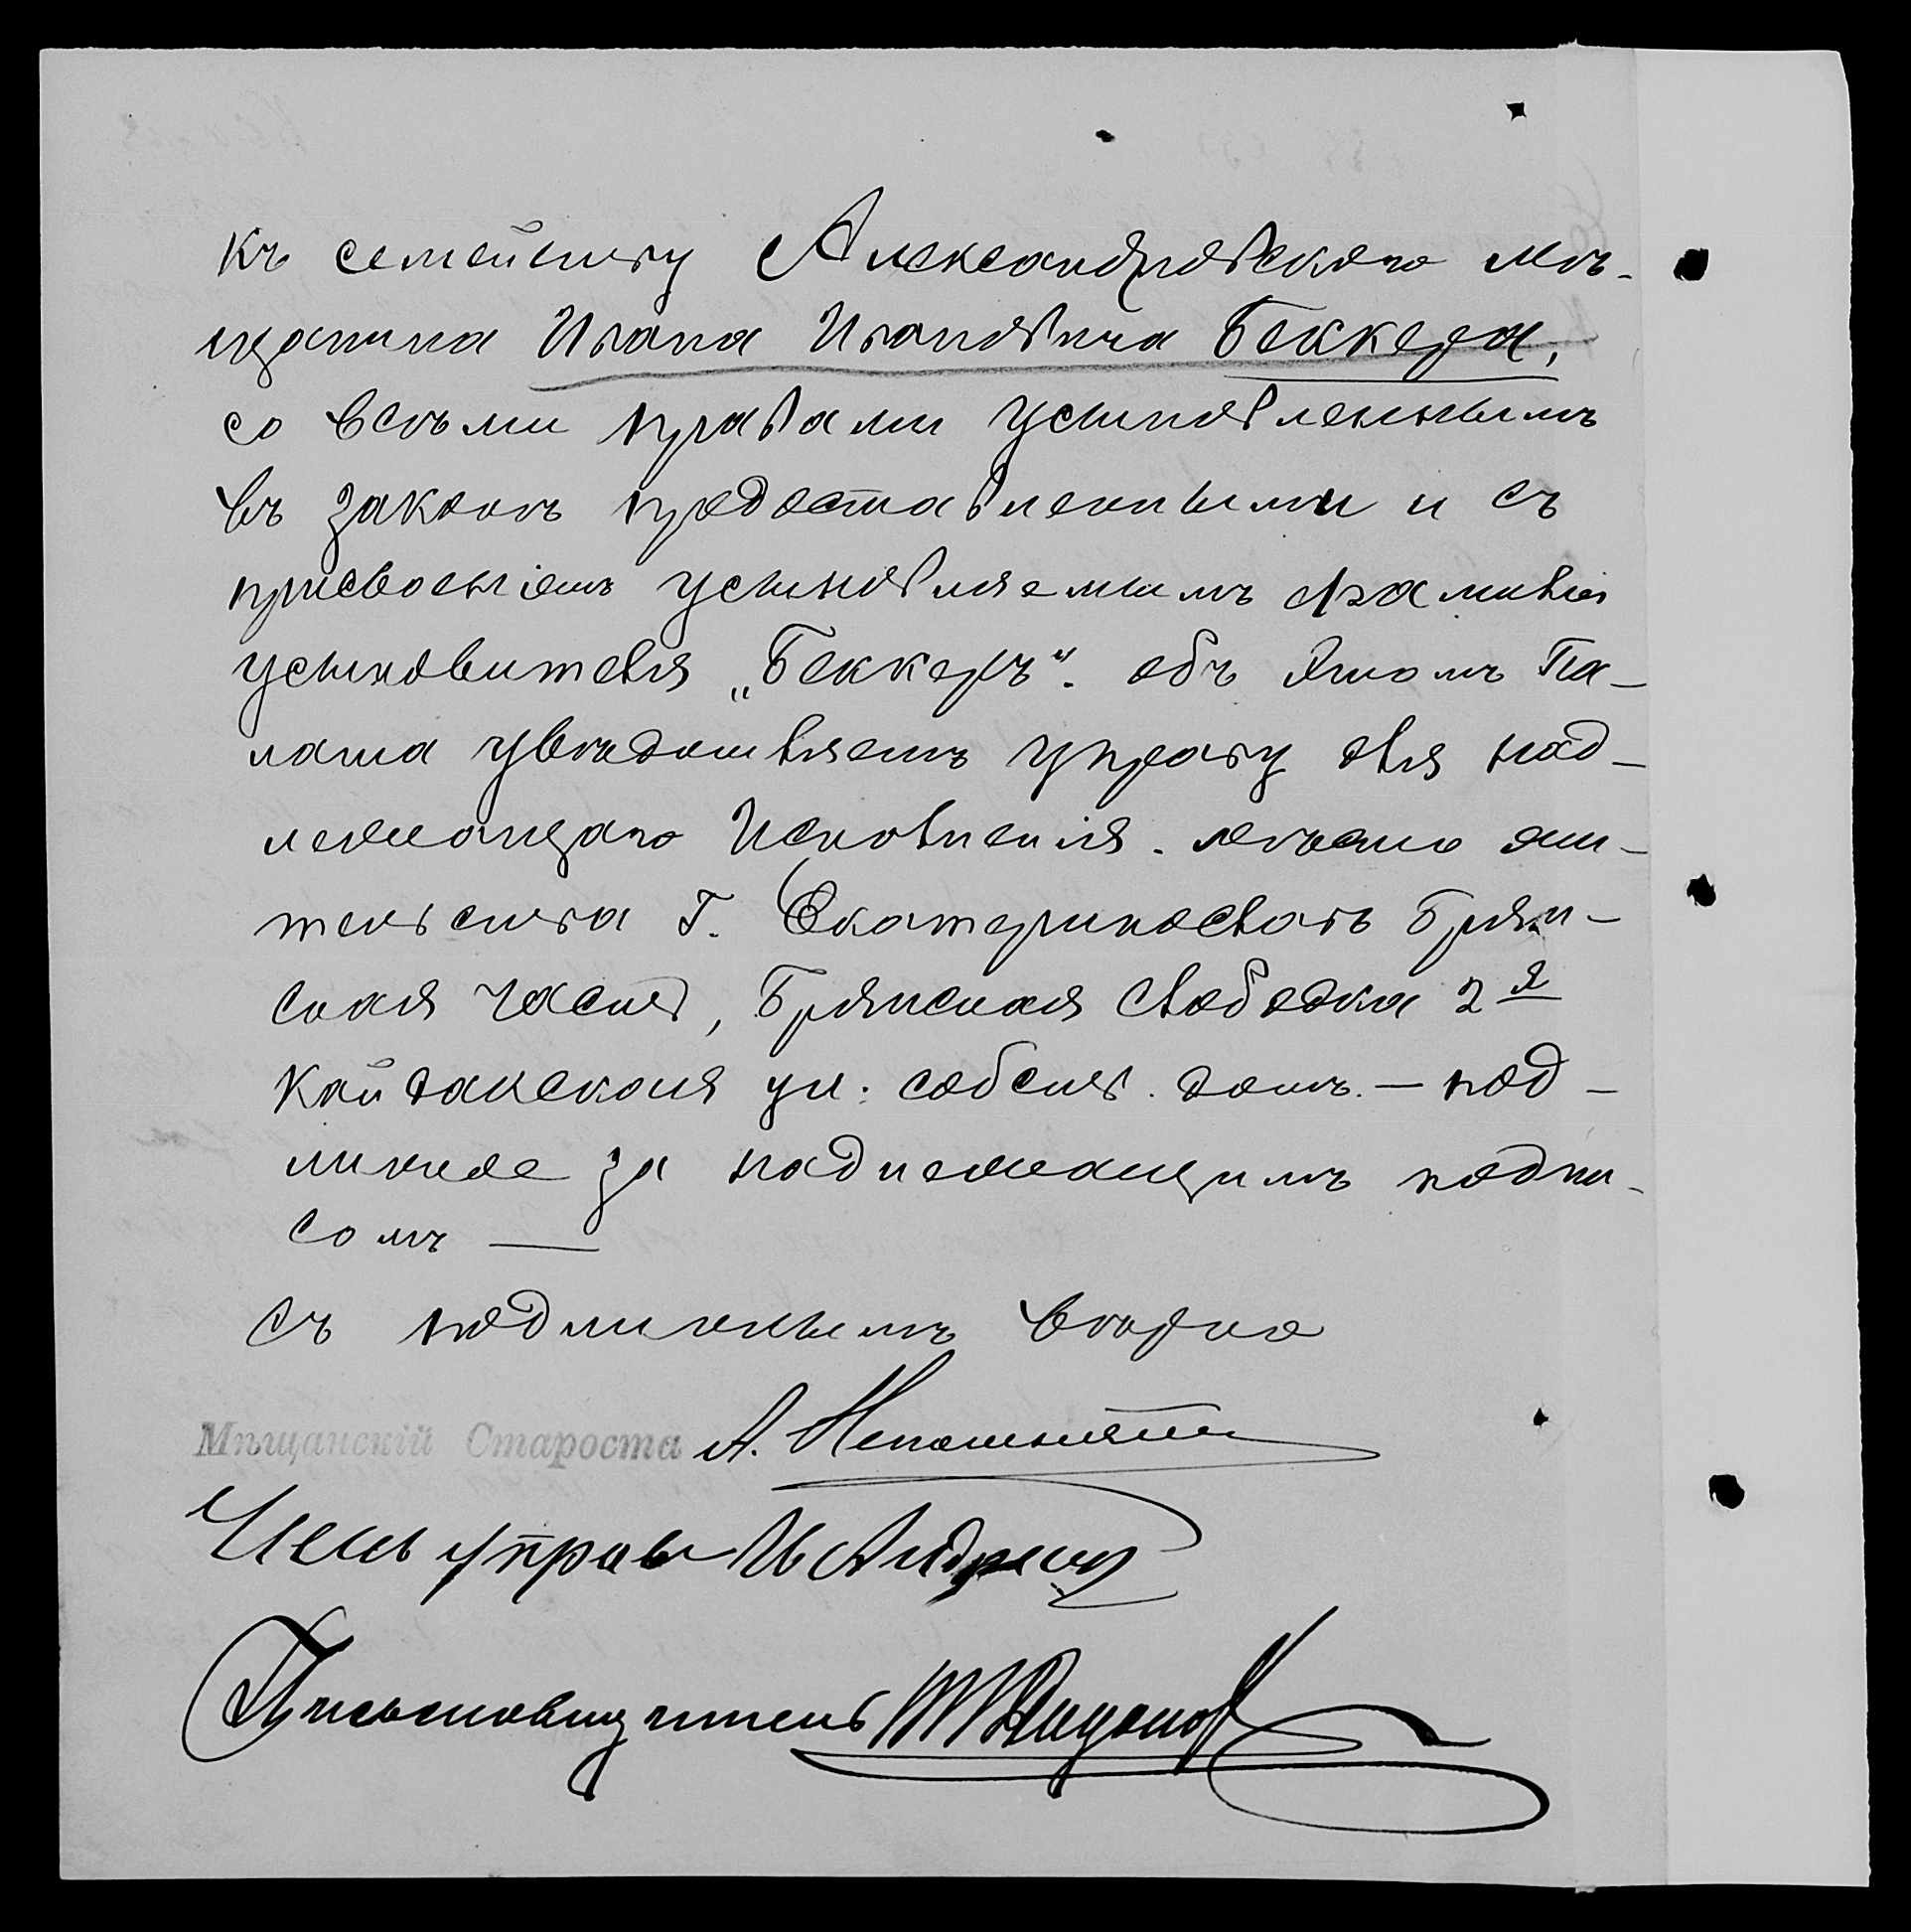 къ семейству Александровскаго мѣ-
щанина Ивана Ивановича Беккера,
со всѣми правами усыновленнымъ
въ законѣ предоставленными и съ
присвоеніемъ усыновляемымъ фамиліи
усыновителя „Беккеръ“. объ этомъ Па-
лата увѣдомляетъ управу для над-
лежащаго исполненія. мѣсто жи-
тельства г. Екатеринославъ Брян-
ская часть, Брянская слободка 2я
Кайдакская ул: собств. домъ. — под-
линное за надлежащимъ подпи-
сомъ —
съ подлиннымъ вѣрно
Мѣщанскій Староста А.
Членъ управы
Письмоводитель